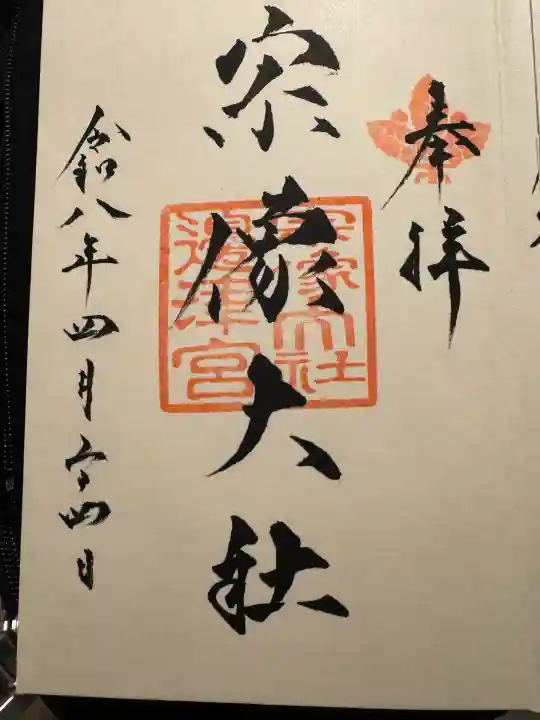 奉拝
宗像大社
宗像大社
邊津宮
令和八年四月廿四日